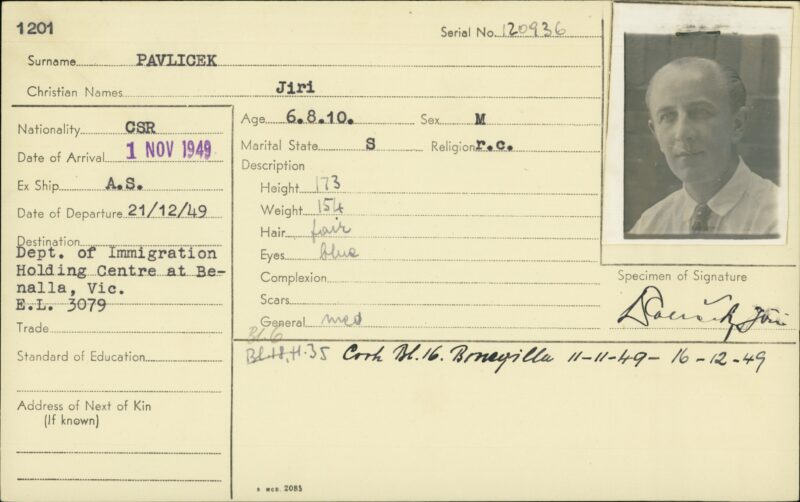 1201
Serial No. 120936
Surname PAVLICEK
Christian Names Jiri
Nationality CSR
Date of Arrival 1 NOV 1949
Ex Ship A.S.
Date of Departure 21/12/49
Destination
Dept. of Immigration
Holding Centre at Be-
nalla, Vic.
E.L. 3079
Trade
Standard of Education
Address of Next of Kin
(If known)
Age 6.8.10. Sex M
Marital State S Religion r.c.
Description
Height 173
Weight 154
Hair fair
Eyes blue
Complexion
Scars
General med
Specimen of Signature
Jiri
Bl.6
Bl.18, H.35 Cook Bl. 16. Bonegilla 11-11-49 - 16-12-49
2085